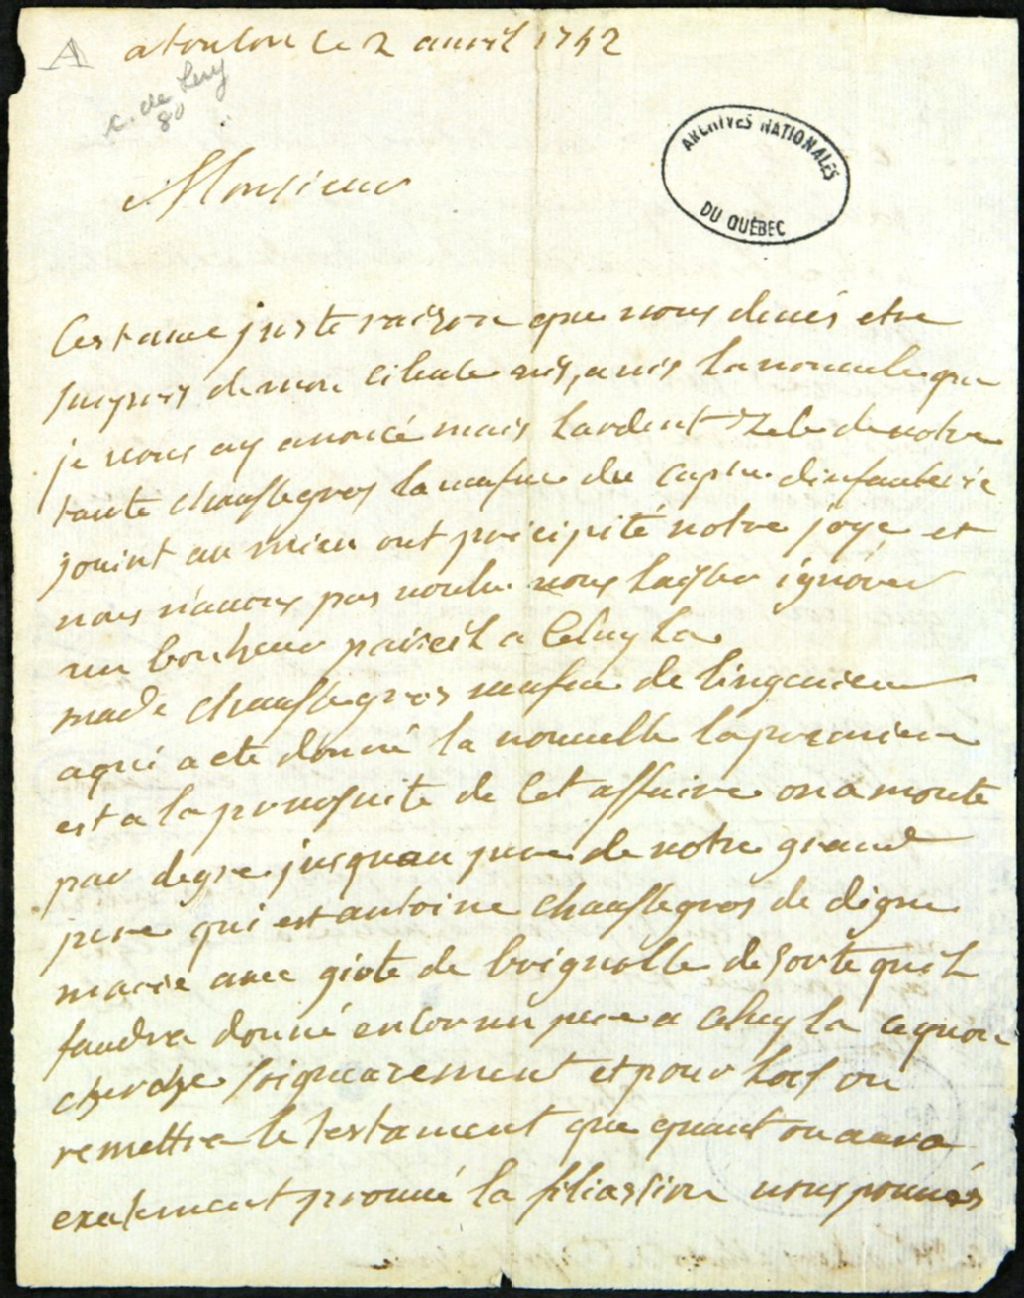 A
a toulon le 2 avvril 1742
C. de Lery
80
Monsieur
ARCHIVES NATIONALES
DU QUÉBEC
Cest avec juste raizon que vous devés etre
surpris de mon silence apres la nouvele que
je vous ay anoncé mais lardent zele de notre
tante chaussegros la veufve du capne dinfanterie
joint au mien ont precipité notre joye et
nous navons pas voulu vous laisser ignorer
un bonheur pareil a celuy la
made chaussegros veufve de lingenieur
a qui a ete donné la nouvelle la premiere
est a la poursuite de cet affaire on a monte
par degre jusquau pere de notre grand
pere qui est antoine chaussegros de digne
marie avec de brignolle de sorte quil
faudra donné encor un pere a celuy la ce quon
cherche soigneusement et pour lors on
remettra le testament que quant on aura
exatement prouvé la filiassion vous pouvés